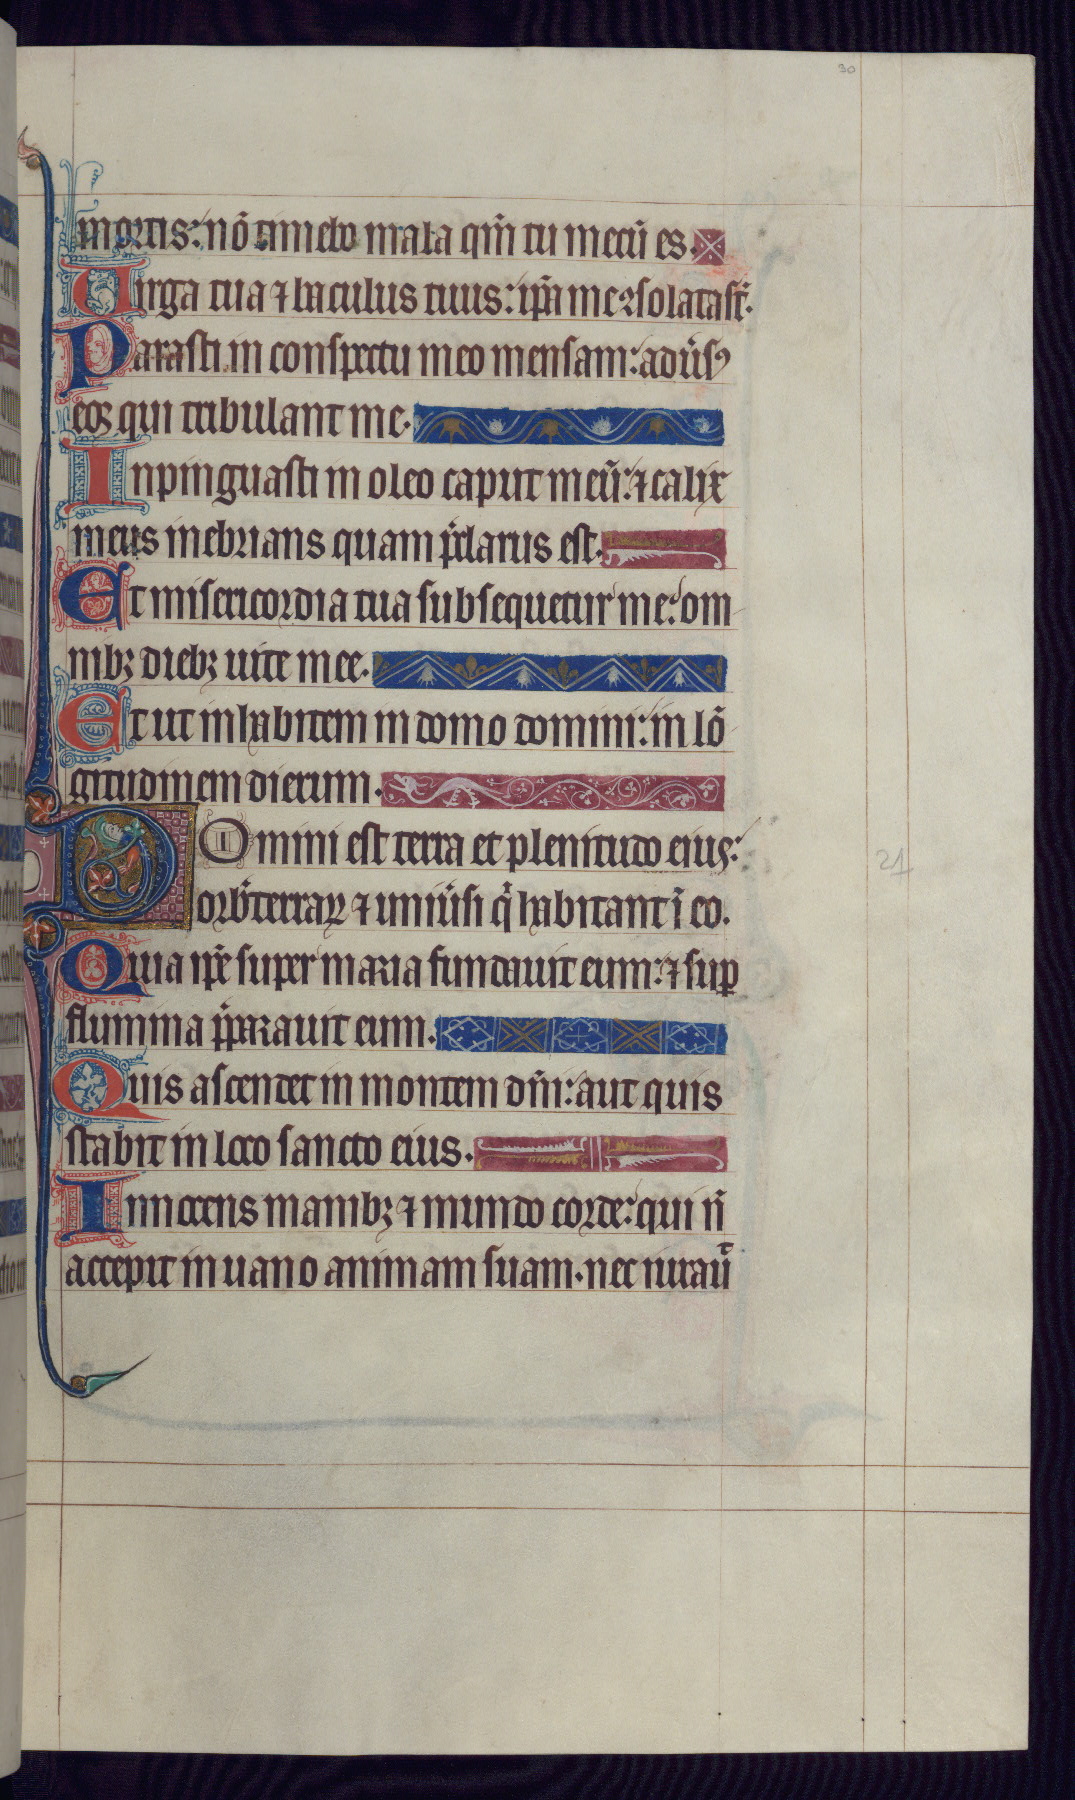 30
mortis: nō timebo mala qm̄ tu mecū es.
Uirga tua ⁊ baculus tuus: ip̄a me ꝯsolata st̄.
Parasti in conspectu meo mensam: aduͥsꝰ
eoꝝ qui tribulant me.
Inpinguasti in oleo caput meū: ⁊ calix
meus inebrians quam p̄clarus est.
Et misericordia tua subsequetur me: om-
nibꝫ diebꝫ uite mee.
Et ut inhabitem in domo domini: in lō-
gitudinem dierum.
Domini est terra et plenitudo eius:
orb̄ terraꝝ ⁊ uniūsi q̄ habitant ī eo.
Quia ip̄e super maria fundauit eum: ⁊ suꝑ
flumina p̄parauit eum.
21
Quis ascendet in montem dn̄i: aut quis
stabit in loco sancto eius.
Innocens manibꝫ ⁊ mundo corde: qui n̄
accepit in uano animam suam. nec iurau̅